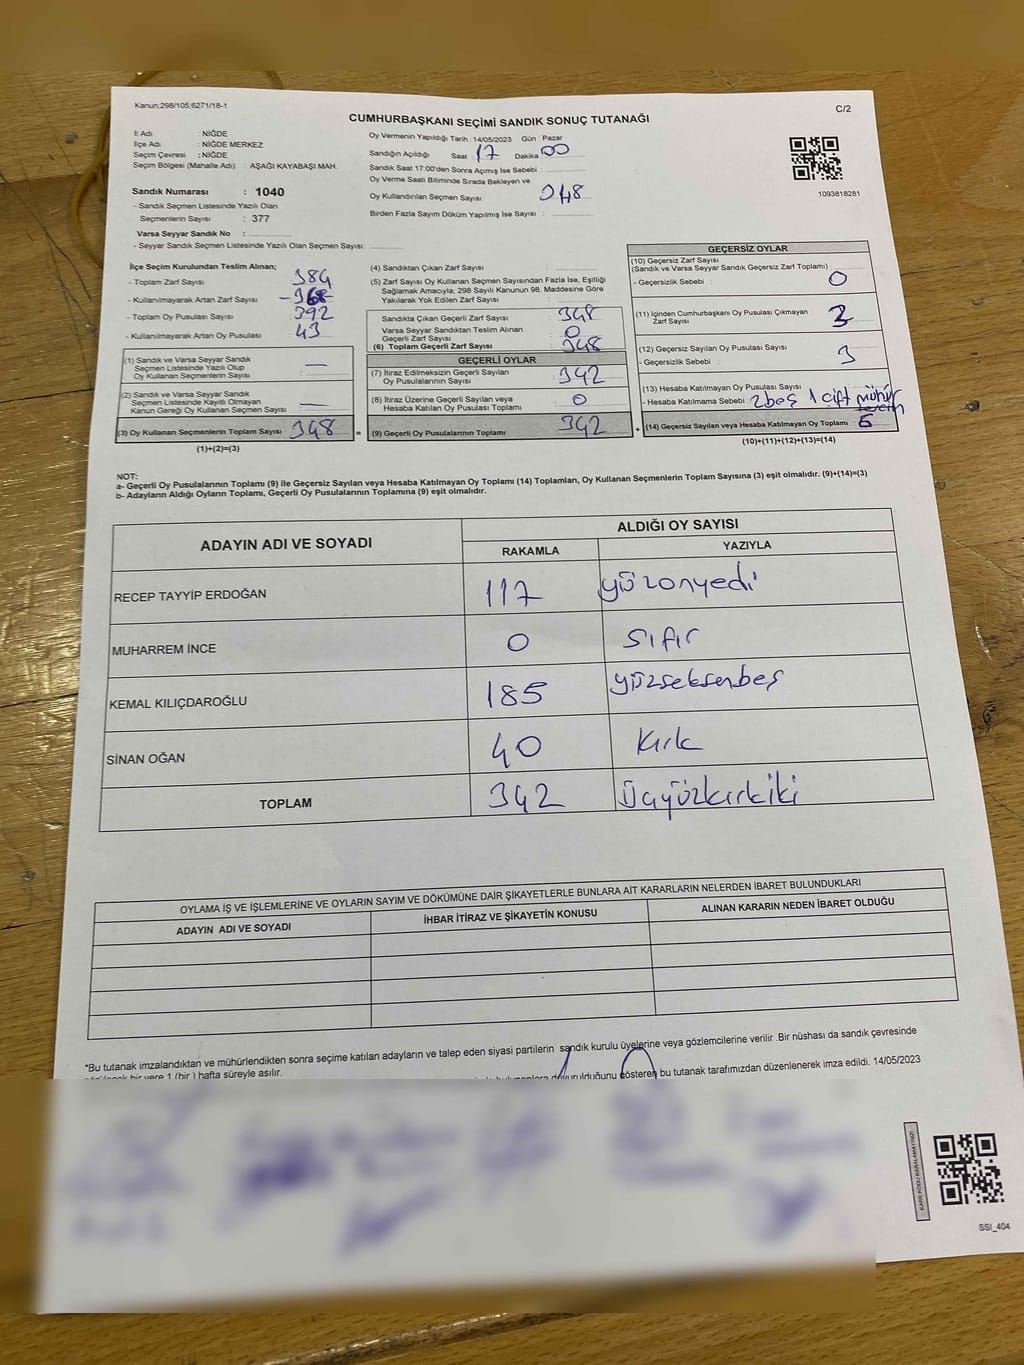 Kanun;298/105;6271/18-1
C/2
CUMHURBAŞKANI SEÇİMİ SANDIK SONUÇ TUTANAĞI
İl Adı : NİĞDE
İlçe Adı : NİĞDE MERKEZ
Seçim Çevresi : NİĞDE
Seçim Bölgesi (Mahalle Adı) : AŞAĞI KAYABAŞI MAH.
Sandık Numarası : 1040
- Sandık Seçmen Listesinde Yazılı Olan
Seçmenlerin Sayısı : 377
Varsa Seyyar Sandık No :
- Seyyar Sandık Seçmen Listesinde Yazılı Olan Seçmen Sayısı:
Oy Vermenin Yapıldığı Tarih : 14/05/2023 Gün : Pazar
Sandığın Açıldığı Saat : 17 Dakika 00
Sandık Saat 17:00'den Sonra Açımış İse Sebebi :
Oy Verme Saati Bitiminde Sırada Bekleyen ve
Oy Kullandırılan Seçmen Sayısı 348
Birden Fazla Sayım Döküm Yapılmış İse Sayısı :
1093818281
İlçe Seçim Kurulundan Teslim Alınan;
- Toplam Zarf Sayısı 384
- Kullanılmayarak Artan Zarf Sayısı
- Toplam Oy Pusulası Sayısı 392
- Kullanılmayarak Artan Oy Pusulası 43
(1) Sandık ve Varsa Seyyar Sandık
Seçmen Listesinde Yazılı Olup
Oy Kullanan Seçmenlerin Sayısı —
(2) Sandık ve Varsa Seyyar Sandık
Seçmen Listesinde Kayıtlı Olmayan
Kanun Gereği Oy Kullanan Seçmen Sayısı —
(3) Oy Kullanan Seçmenlerin Toplam Sayısı 348 =
(1)+(2)=(3)
(4) Sandıktan Çıkan Zarf Sayısı :
(5) Zarf Sayısı Oy Kullanan Seçmen Sayısından Fazla İse, Eşitliği
Sağlamak Amacıyla, 298 Sayılı Kanunun 98. Maddesine Göre
Yakılarak Yok Edilen Zarf Sayısı :
Sandıkta Çıkan Geçerli Zarf Sayısı : 348
Varsa Seyyar Sandıktan Teslim Alınan
Geçerli Zarf Sayısı : 0
(6) Toplam Geçerli Zarf Sayısı 348
GEÇERLİ OYLAR
(7) İtiraz Edilmeksizin Geçerli Sayılan
Oy Pusulalarının Sayısı : 342
(8) İtiraz Üzerine Geçerli Sayılan veya
Hesaba Katılan Oy Pusulası Toplamı : 0
(9) Geçerli Oy Pusulalarının Toplamı 342 +
GEÇERSİZ OYLAR
(10) Geçersiz Zarf Sayısı
(Sandık ve Varsa Seyyar Sandık Geçersiz Zarf Toplamı) :
- Geçersizlik Sebebi : 0
(11) İçinden Cumhurbaşkanı Oy Pusulası Çıkmayan
Zarf Sayısı : 3
(12) Geçersiz Sayılan Oy Pusulası Sayısı
- Geçersizlik Sebebi : 3
(13) Hesaba Katılmayan Oy Pusulası Sayısı
- Hesaba Katılmama Sebebi : 2 boş 1 çift mühür
(14) Geçersiz Sayılan veya Hesaba Katılmayan Oy Toplamı 6
(10)+(11)+(12)+(13)=(14)
NOT:
a- Geçerli Oy Pusulalarının Toplamı (9) ile Geçersiz Sayılan veya Hesaba Katılmayan Oy Toplamı (14) Toplamları, Oy Kullanan Seçmenlerin Toplam Sayısına (3) eşit olmalıdır. (9)+(14)=(3)
b- Adayların Aldığı Oyların Toplamı, Geçerli Oy Pusulalarının Toplamına (9) eşit olmalıdır.
ADAYIN ADI VE SOYADI ALDIĞI OY SAYISI
RAKAMLA YAZIYLA
RECEP TAYYİP ERDOĞAN 117 yüzonyedi
MUHARREM İNCE 0 sıfır
KEMAL KILIÇDAROĞLU 185 yüzseksenbeş
SİNAN OĞAN 40 kırk
TOPLAM 342 üçyüzkırkiki
OYLAMA İŞ VE İŞLEMLERİNE VE OYLARIN SAYIM VE DÖKÜMÜNE DAİR ŞİKAYETLERLE BUNLARA AİT KARARLARIN NELERDEN İBARET BULUNDUKLARI
ADAYIN ADI VE SOYADI İHBAR İTİRAZ VE ŞİKAYETİN KONUSU ALINAN KARARIN NEDEN İBARET OLDUĞU
*Bu tutanak imzalandıktan ve mühürlendikten sonra seçime katılan adayların ve talep eden siyasi partilerin sandık kurulu üyelerine veya gözlemcilerine verilir .Bir nüshası da sandık çevresinde
bir yere 1 (bir ) hafta süreyle asılır.
gösteren bu tutanak tarafımızdan düzenlenerek imza edildi. 14/05/2023
SSI_404